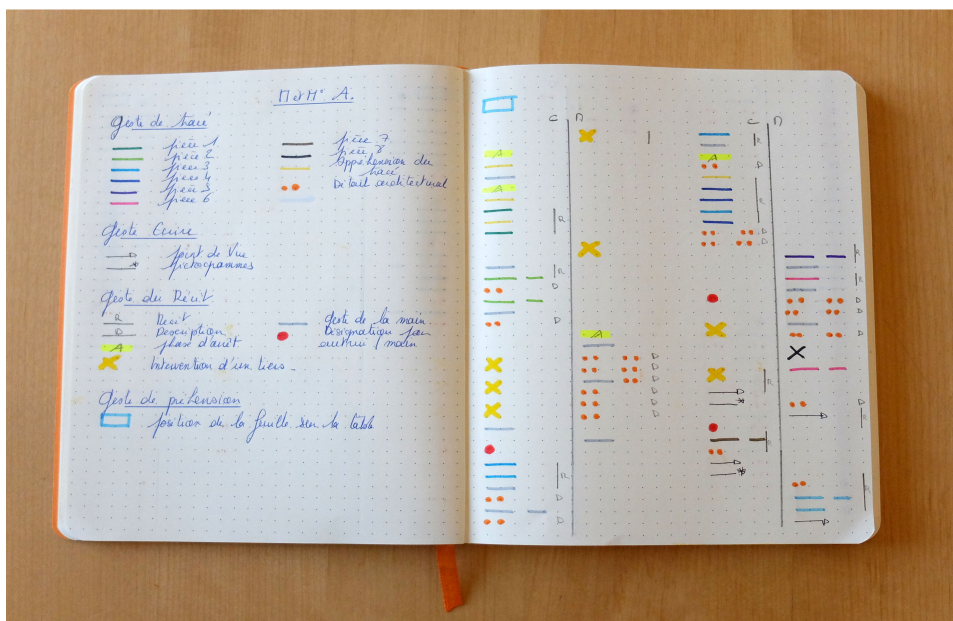 M et Mme A.
geste de tracé
pièce 1
pièce 2
pièce 3
pièce 4
pièce 5
pièce 6
pièce 7
pièce 8
Appréhension du tracé
Détail architectural
geste Écrire
point de vue
pictogrammes
geste du Récit
R Récit
D Description
A phase d'arrêt
Intervention d'un tiers -
geste de la main
Désignation par autrui / main
geste de préhension
position de la feuille sur la table
A
A
R
R
D
D
R
D
D
A
D
D
D
D
D
R
A
D
R
D
D
R
R
R
R
D
D
R
D
R
R